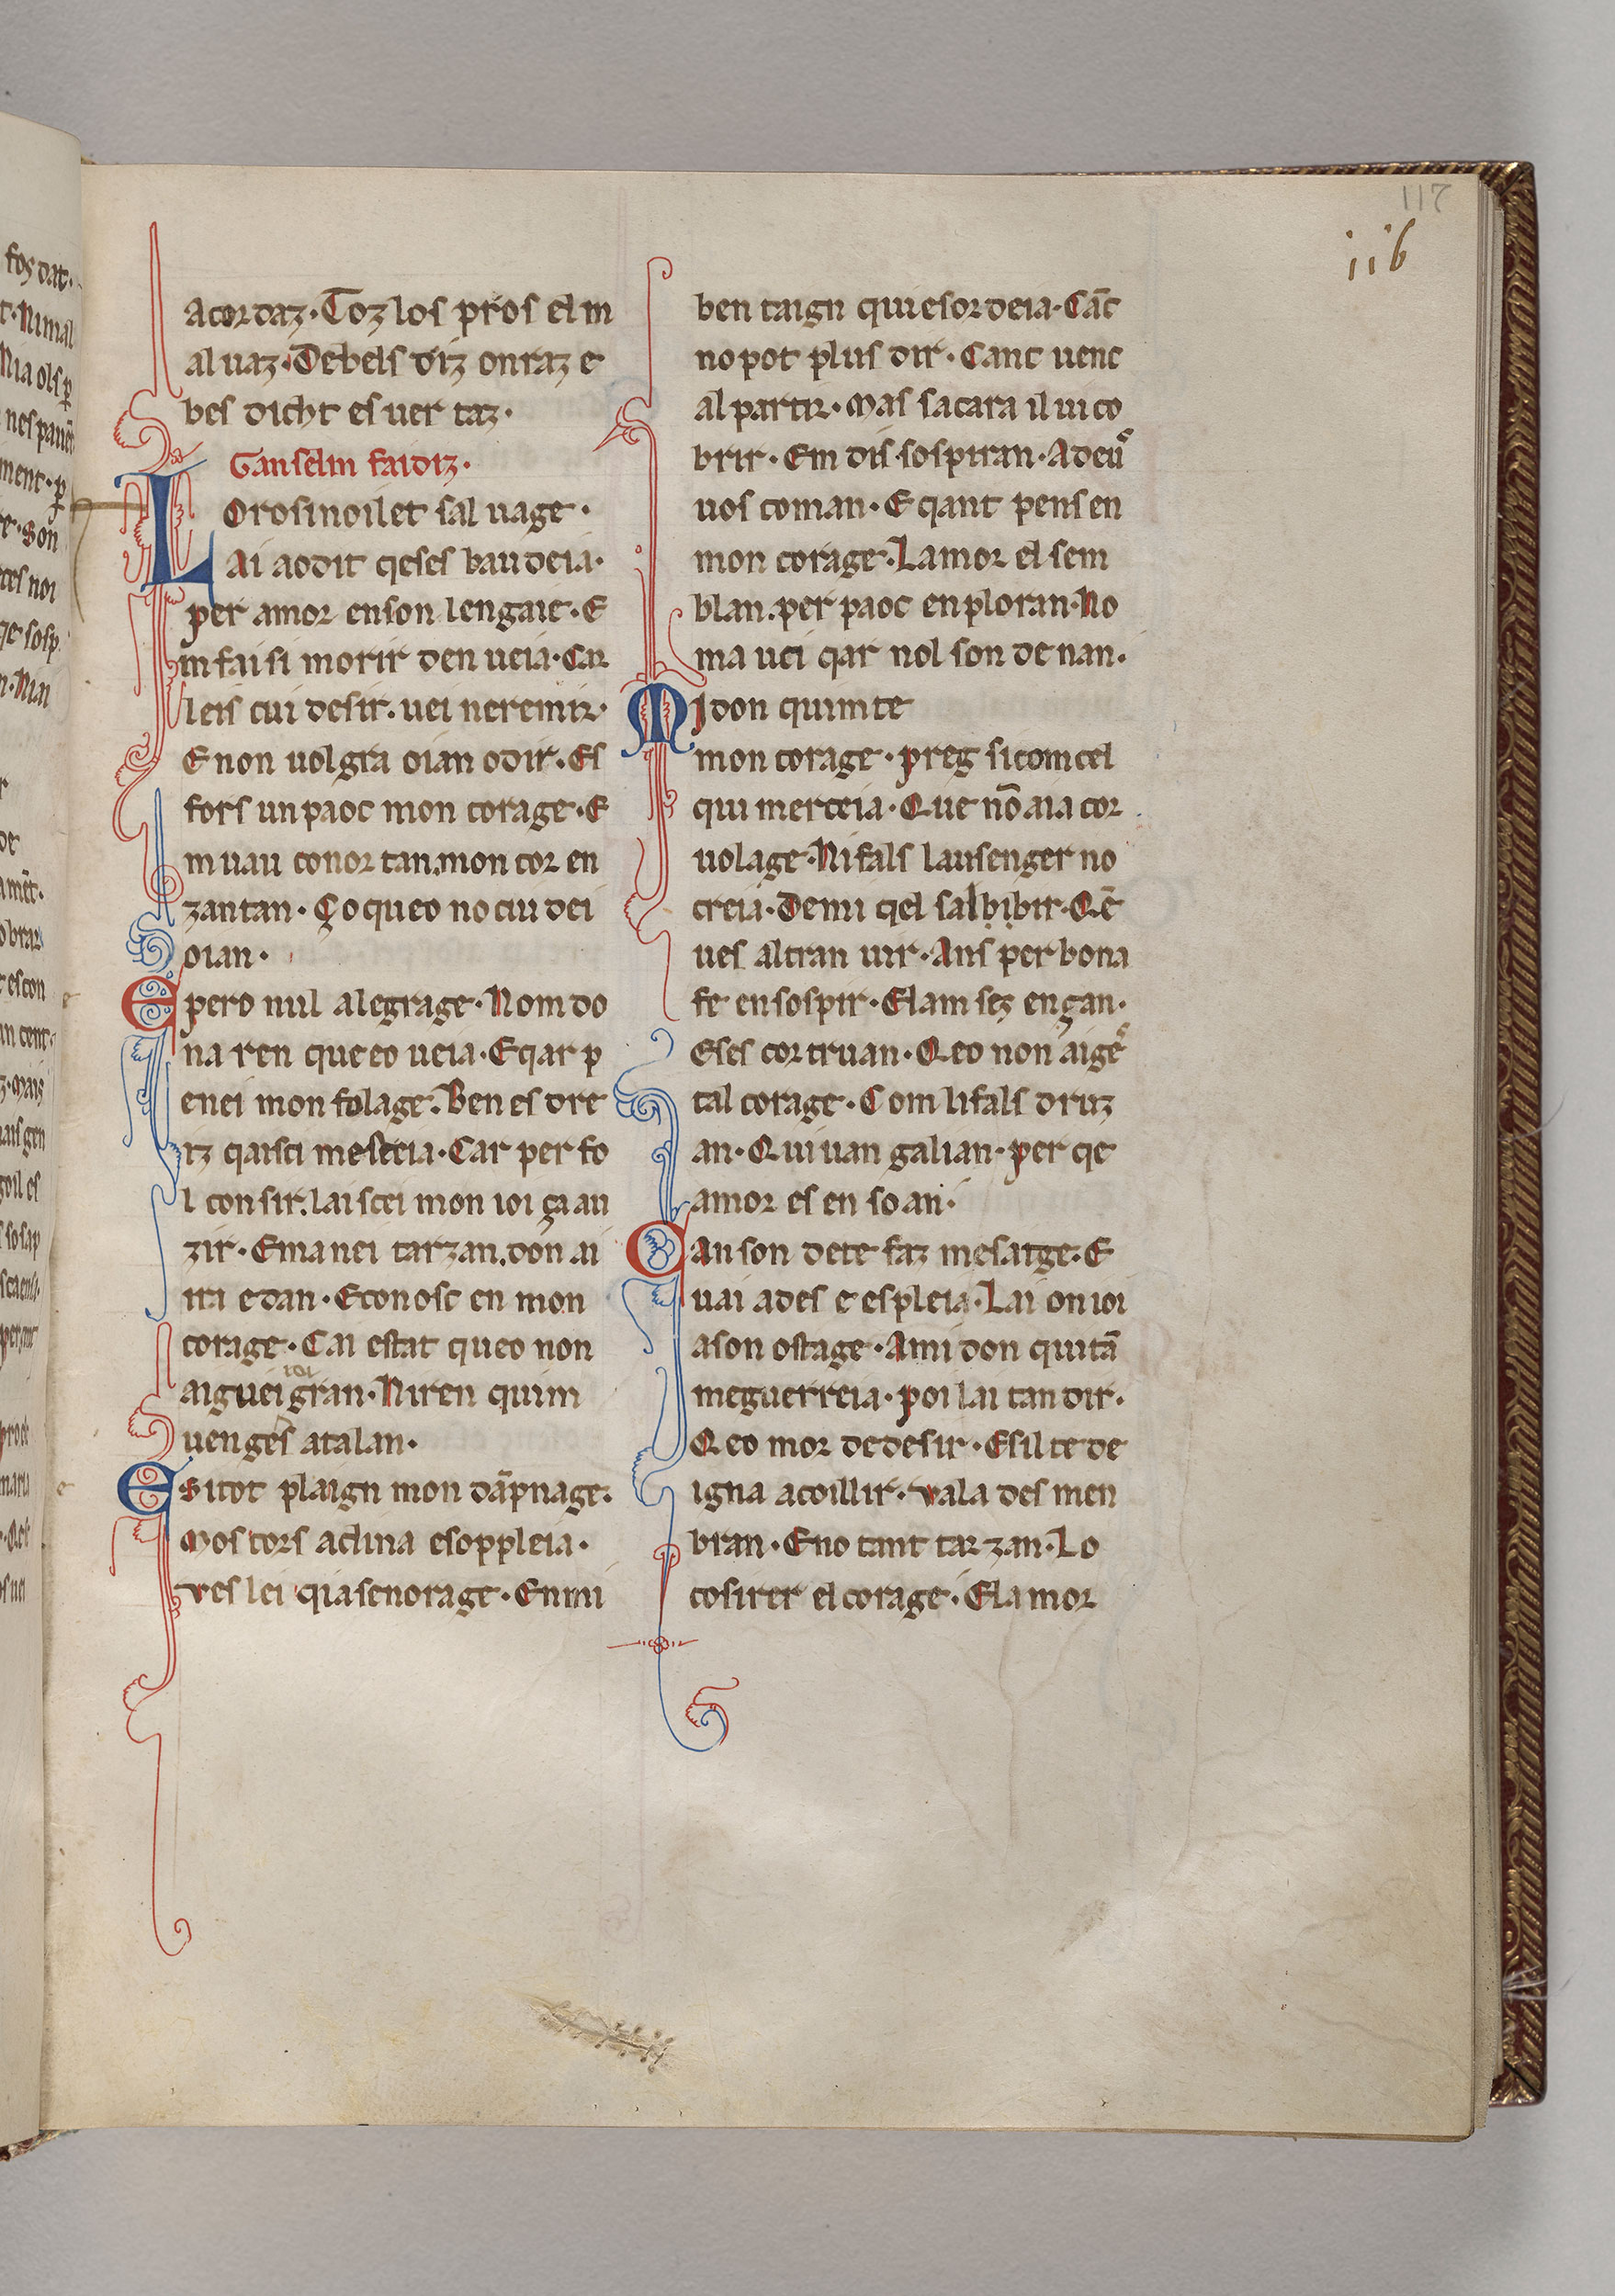 117
116
acordaz·Toz los pros el m
al uaz·De bels diz onraz e
bes dicht es uer taz·
Ganselm faidiz·
LOrosinoilet sal uage·
Ai aodit qeses baudeia·
per amor enson lengaie·E
m fai si morir den ueia·Car
leis cui desir.uei neremir·
E non uolgra oian odir.Es
fors un paoc mon corage·E
m uau conor tan.mon cor en
zantan·Ço queo no ciu dei
oian·
Epero nul alegrage·Nom do
na ren que eo ueia·E qar p
enei mon folage.Ben es dre
iz qaisci mesteia·Car per fo
l consir.lai scei mon ioi ça an
zir·Ema nei tarzan.don ai
ira edan·Econosc en mon
corage·Cai estat queo non
aiguei ioi gran·Niren quim
uenges atalan·
Esitot plaign mon dāpnage.
Mos cors aclina esoppleia·
ves lei qia senorage·Enmi
ben taign quiesordeia·Cāc
no pot plus dir·Canc uenc
al partir·Mas sa cara il ui co
brir·Em dis sospiran·A deu
uos coman·E qant pens en
mon corage·Lamor el sem
blan.per paoc en ploran·No
ma uci qar nol son de nan.
Midon quim te
mon corage·preg si com cel
qui merceia·Que nō aia cor
uolage·Ni fals lausenger no
creia·De mi qel salbibir·Qē
ues altran uir·Ans per bona
fe en sospir·Elam sez engan·
Eses cor truan·Qeo non aige
tal corage·Com li fals druz
an·Qui uan galian·per qe
amor es en soan·
Canson de te faz mesatge.E
uai ades e espleia·Lai on ioi
a son ostage·Ami don quitā
me guerreia·poi lai tan dir·
Qeo mor de desir·Esil te de
igna acoillir·vala des men
bran·Eno tant tarzan·Lo
cosirer el corage·Elamor